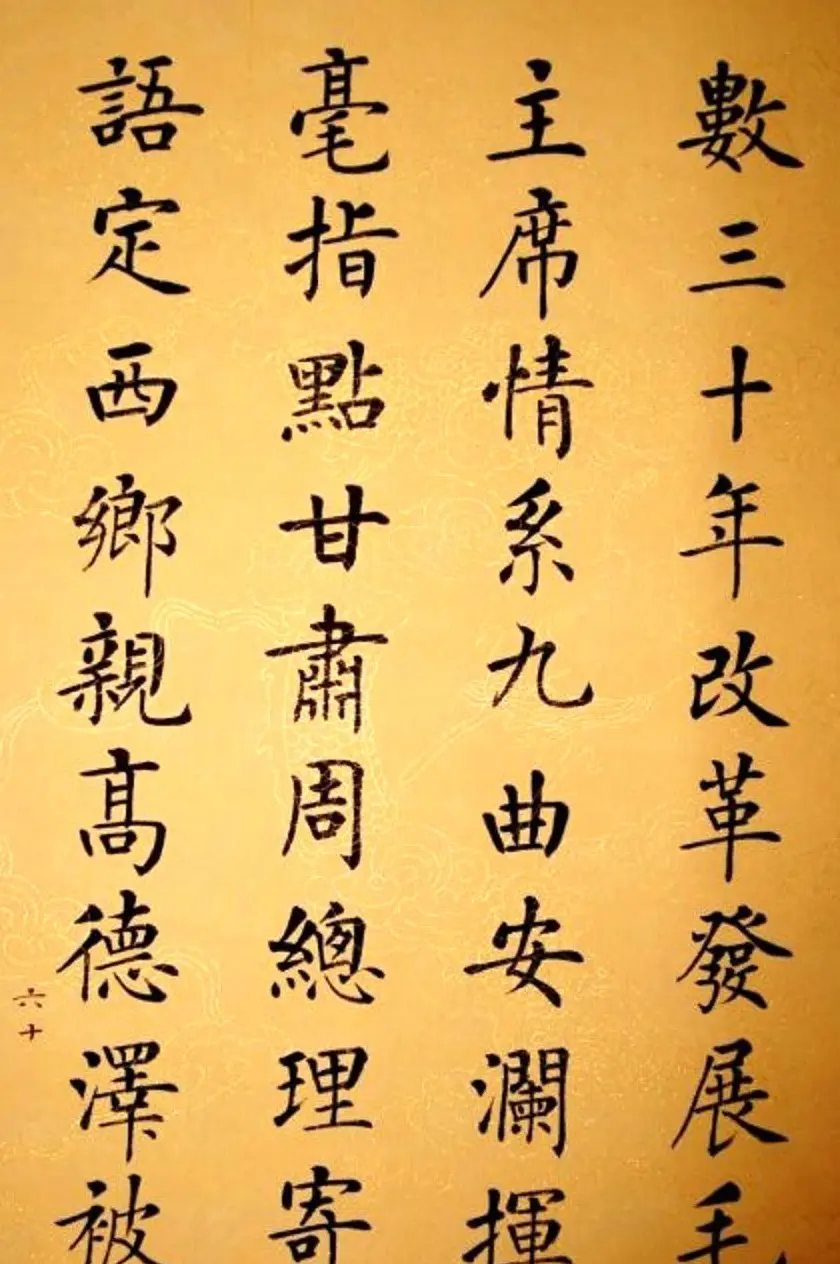 數三十年改革發展毛
主席情系九曲安瀾揮
毫指點甘肅周總理寄
語定西鄉親高德澤被
六十